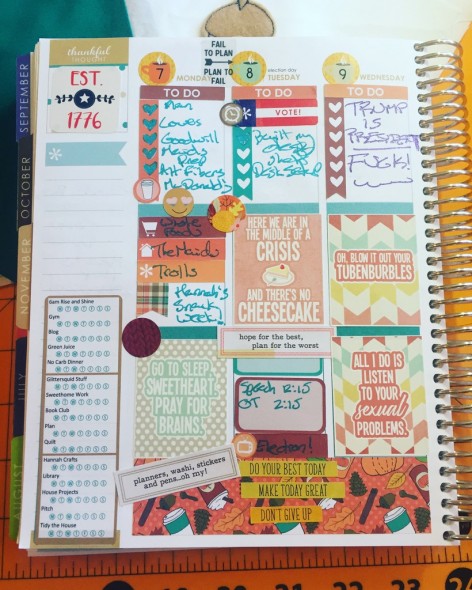 FAIL
TO PLAN
PLAN TO
FAIL
thankful
THOUGHT
EST.
1776
SEPTEMBER
OCTOBER
NOVEMBER
JULY
AUGUST
6am Rise and Shine
M T W T F S S
Gym
M T W T F S S
Blog
M T W T F S S
Green Juice
M T W T F S S
No Carb Dinner
M T W T F S S
Glitterspud Stuff
M T W T F S S
Sweethome Work
M T W T F S S
Book Club
M T W T F S S
Plan
M T W T F S S
Quilt
M T W T F S S
Hannah Crafts
M T W T F S S
Library
M T W T F S S
House Projects
M T W T F S S
Pitch
M T W T F S S
Tidy the House
M T W T F S S
7 MONDAY
TO DO
Plan
Lowes
Goodwill
Maids
Prep
Art Fibers
McDonald's
The Maids
Trolls
Hannah's
Week!
GO TO SLEEP,
SWEETHEART.
PRAY FOR
BRAINS.
8 election day
TUESDAY
TO DO
VOTE!
Built my
desk
HERE WE ARE
IN THE
MIDDLE OF A
CRISIS
AND THERE'S
NO
CHEESECAKE
hope for the best,
plan for the worst
Speech 12:15
OT 2:15
Election!
9 WEDNESDAY
TO DO
TRUMP
IS
PRESIDENT
FUCK!
OH, BLOW IT OUT YOUR
TUBENBURBLES
ALL I DO IS
LISTEN
TO YOUR
sexual
PROBLEMS.
planners, washi, stickers
and pens..oh my!
DO YOUR BEST TODAY
MAKE TODAY GREAT
DON'T GIVE UP
20 21 22 23 24